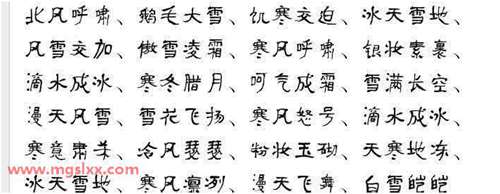 北风呼啸、鹅毛大雪、饥寒交迫、冰天雪地、
风雪交加、傲雪凌霜、寒风呼啸、银妆素裹、
滴水成冰、寒冬腊月、呵气成霜、雪满长空、
漫天风雪、雪花飞扬、寒风怒号、滴水成冰、
寒意肃杀、冷风瑟瑟、粉妆玉砌、天寒地冻、
www.mgslxx.com
冰天雪地、寒风凛冽、漫天飞舞、白雪皑皑、